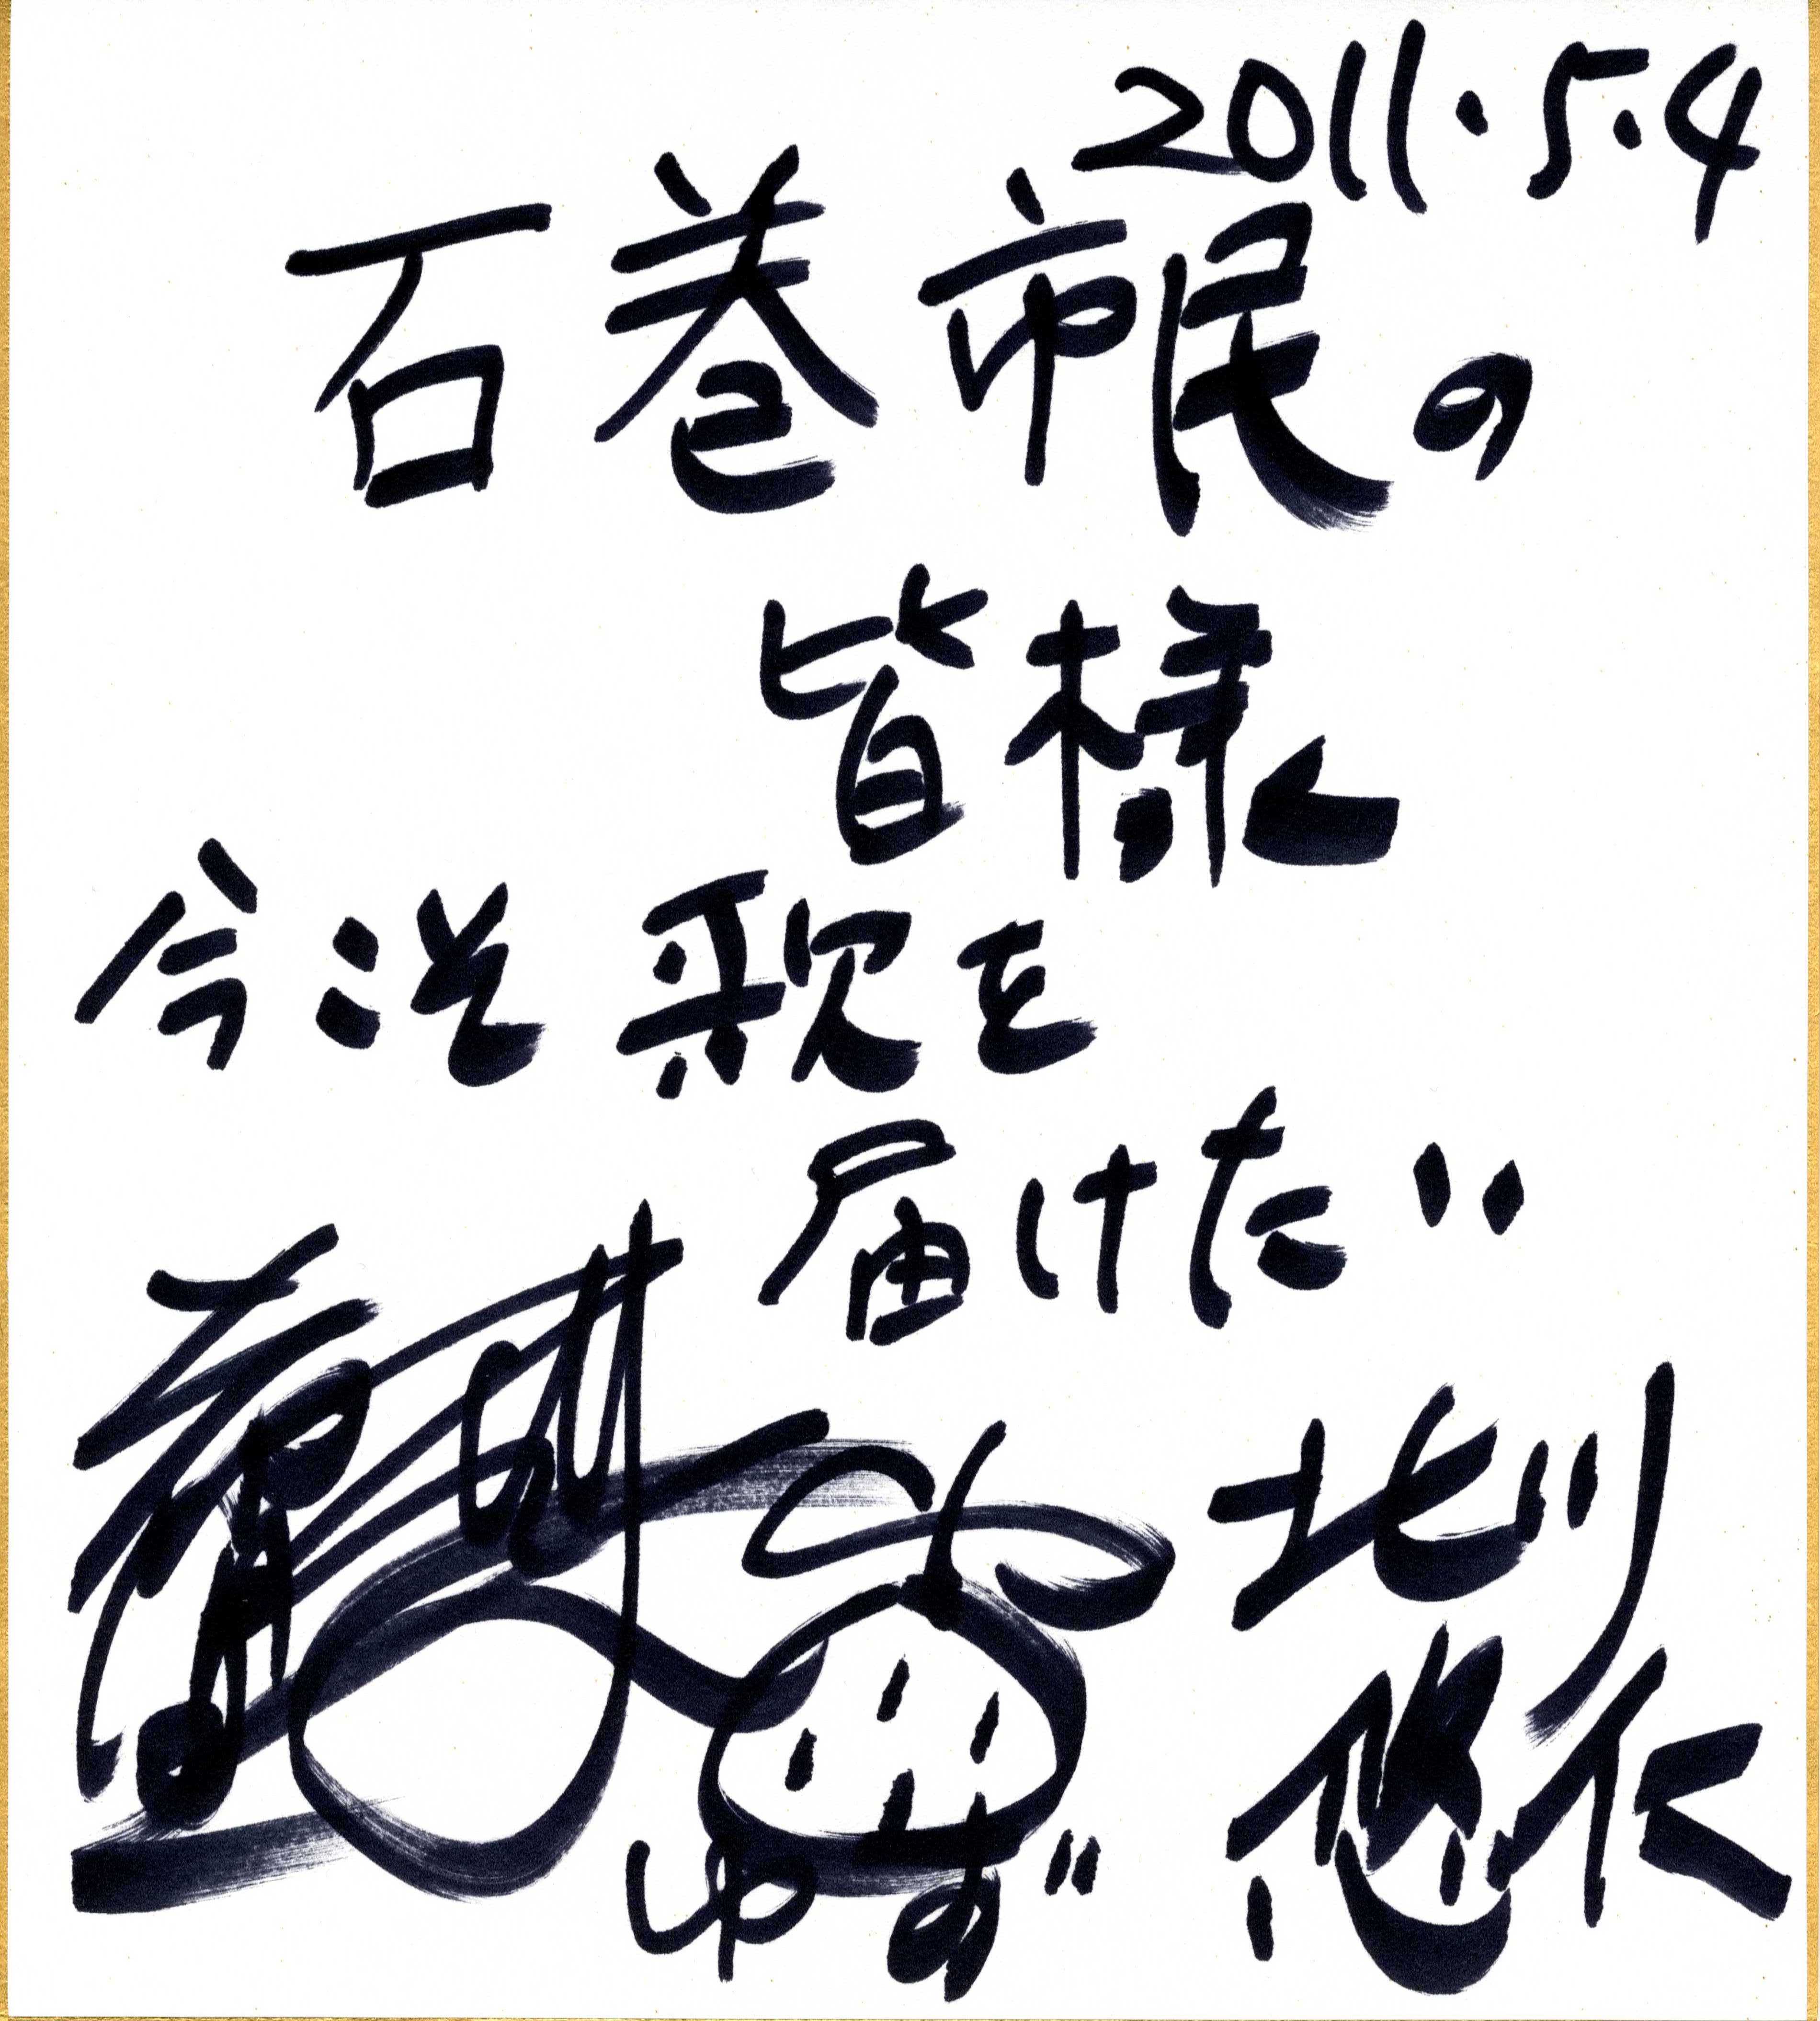 2011.5.4
石巻市民の
皆様へ
今こそ歌を
届けたい
北川
悠仁
ゆず